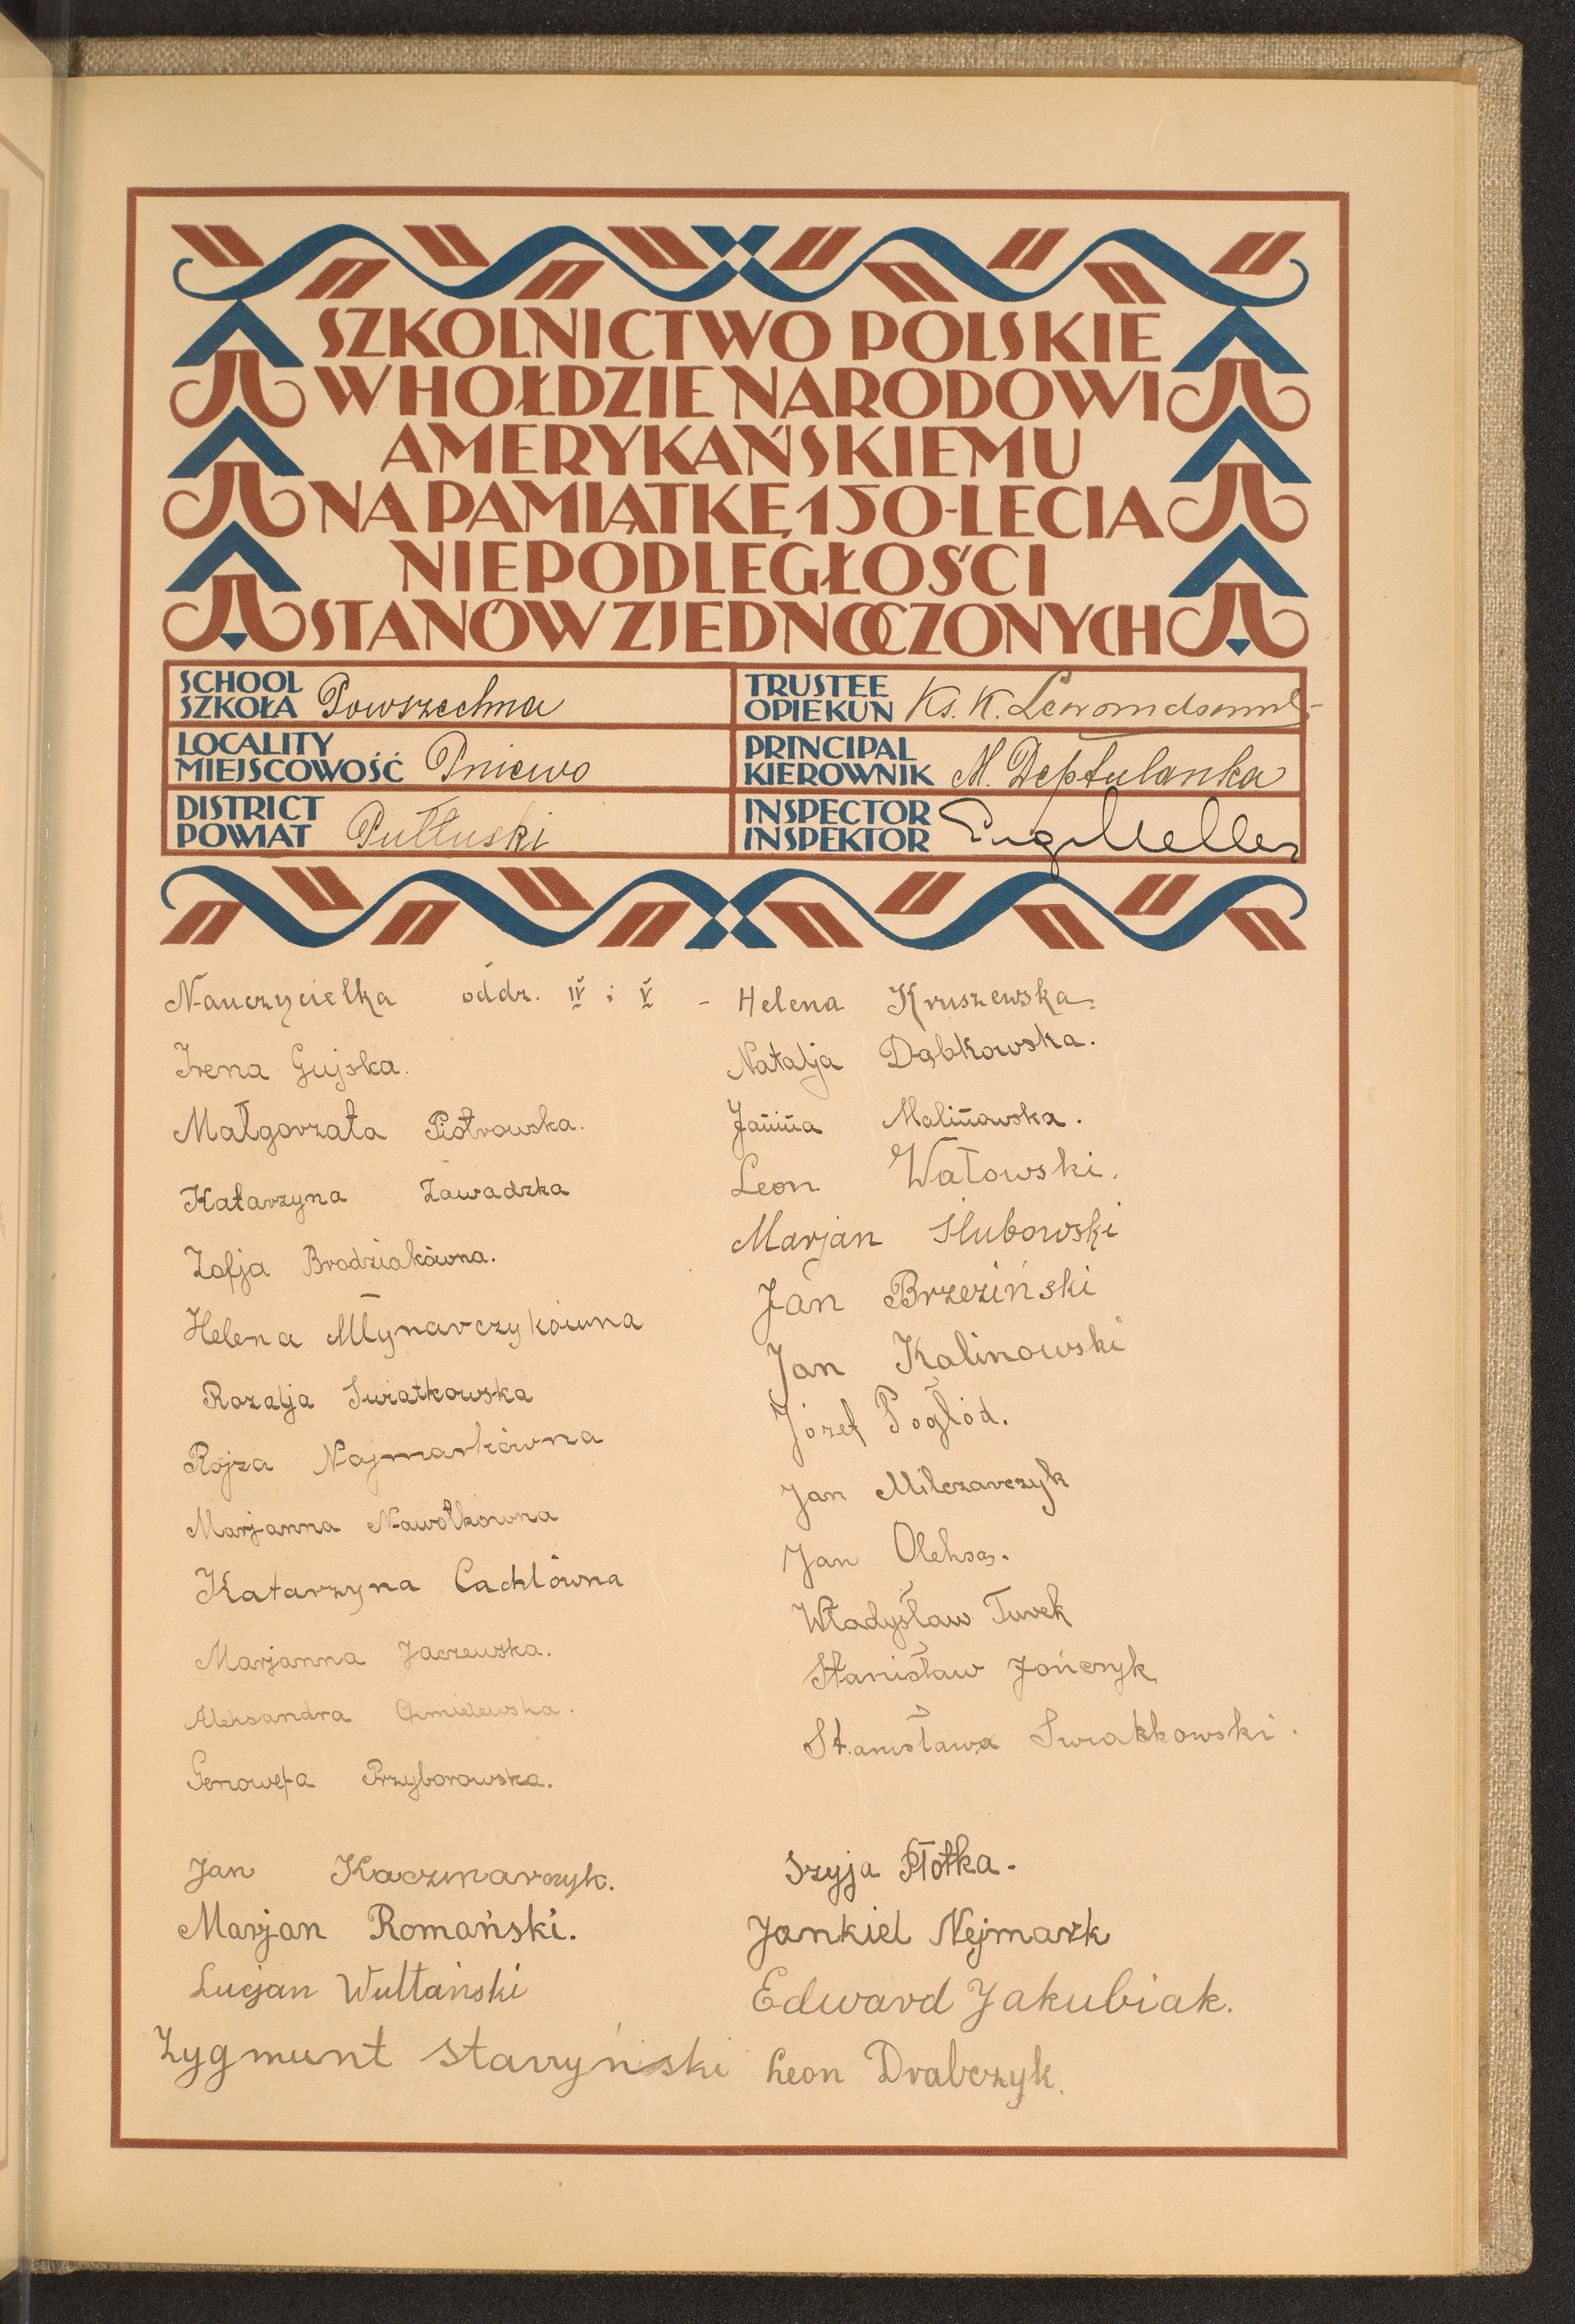 SZKOLNICTWO POLSKIE
W HOŁDZIE NARODOWI
AMERYKAŃSKIEMU
NA PAMIĄTKĘ 150-LECIA
NIEPODLEGŁOŚCI
STANÓW ZJEDNOCZONYCH
SCHOOL
SZKOŁA Powszechna
LOCALITY
MIEJSCOWOŚĆ Pniewo
DISTRICT
POWIAT Pułtuski
TRUSTEE
OPIEKUN Ks. K.
PRINCIPAL
KIEROWNIK M. Deptulanka
INSPECTOR
INSPEKTOR
Nauczycielka oddz. IV i V - Helena Kruszewska
Irena Gujska.
Małgorzata Piotrowska.
Katarzyna Zawadzka
Zofja Brodziakówna.
Helena Młynarczykówna
Rozalja Swiatkowska
Rojza Najmarkówna
Marjanna Nawołkowna
Katarzyna Cachlówna
Marjanna Jaczewska.
Aleksandra Chmielewska.
Genowefa Przyborowska.
Jan Kaczmarczyk.
Marjan Romański.
Lucjan Wultański
Zygmunt Starzyński
Natalja Dąbkowska.
Janina Malinowska.
Leon Watowski.
Marjan Slubowski
Jan Brzeziński
Jan Kalinowski
Józef Pogłód.
Jan Milczarczyk
Jan Oleksa.
Władysław Turek
Stanisław Jończyk
Stanisława Swiatkowski.
Szyja Płotka.
Jankiel Nejmark
Edward Jakubiak.
Leon Drabczyk.